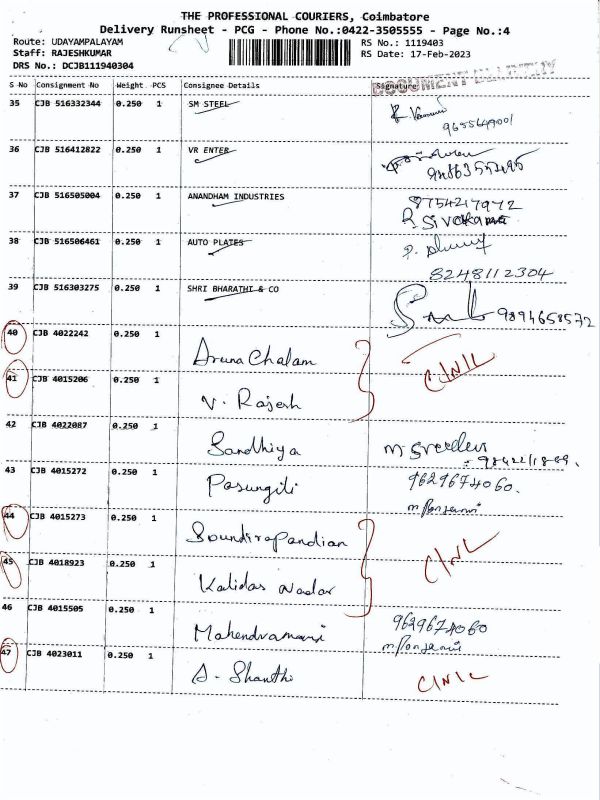 THE PROFESSIONAL COURIERS, Coimbatore
Delivery Runsheet - PCG - Phone No.:0422-3505555 - Page No.:4
Route: UDAYAMPALAYAM RS No.: 1119403
Staff: RAJESHKUMAR RS Date: 17-Feb-2023
DRS No.: DCJB111940304
DOCUMENT DELIVERY
S No Consignment No Weight PCS Consignee Details Signature
35 CJB 516332344 0.250 1 SM STEEL
9655649001
36 CJB 516412822 0.250 1 VR ENTER
37 CJB 516505004 0.250 1 ANANDHAM INDUSTRIES 8754217972
R SIVAKAMI
38 CJB 516506461 0.250 1 AUTO PLATES
8248112304
39 CJB 516303275 0.250 1 SHRI BHARATHI & CO
9894658572
40 CJB 4022242 0.250 1 Aruna Chalam
CINIL
41 CJB 4015206 0.250 1 V. Rajesh
42 CJB 4022087 0.250 1 Sandhiya
43 CJB 4015272 0.250 1 Pasungili 9629674060.
44 CJB 4015273 0.250 1 Soundirapandian
CINIL
45 CJB 4018923 0.250 1 Kalidas nadar
46 CJB 4015505 0.250 1 Mahendramani 9629674060
47 CJB 4023011 0.250 1 S. Shanthi CINIL